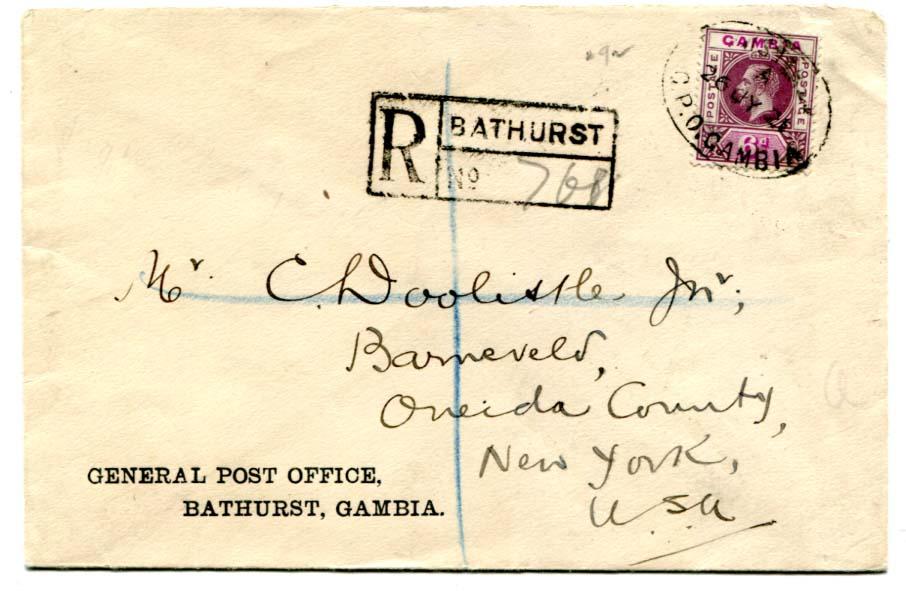 GAMBIA
POSTAGE
POSTAGE
6d
26 JY
G.P.O. GAMBIA
R
BATHURST
No 768
Mr. C. Doolittle Jnr,
Barneveld,
Oneida County,
New York,
U.S.A
GENERAL POST OFFICE,
BATHURST, GAMBIA.